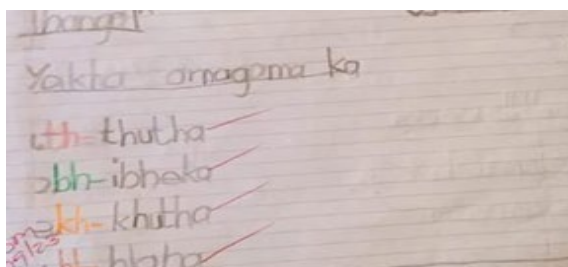 Yakha amagama ka
th- thutha
bh- ibhaka
kh- khutha
hl- hlaba